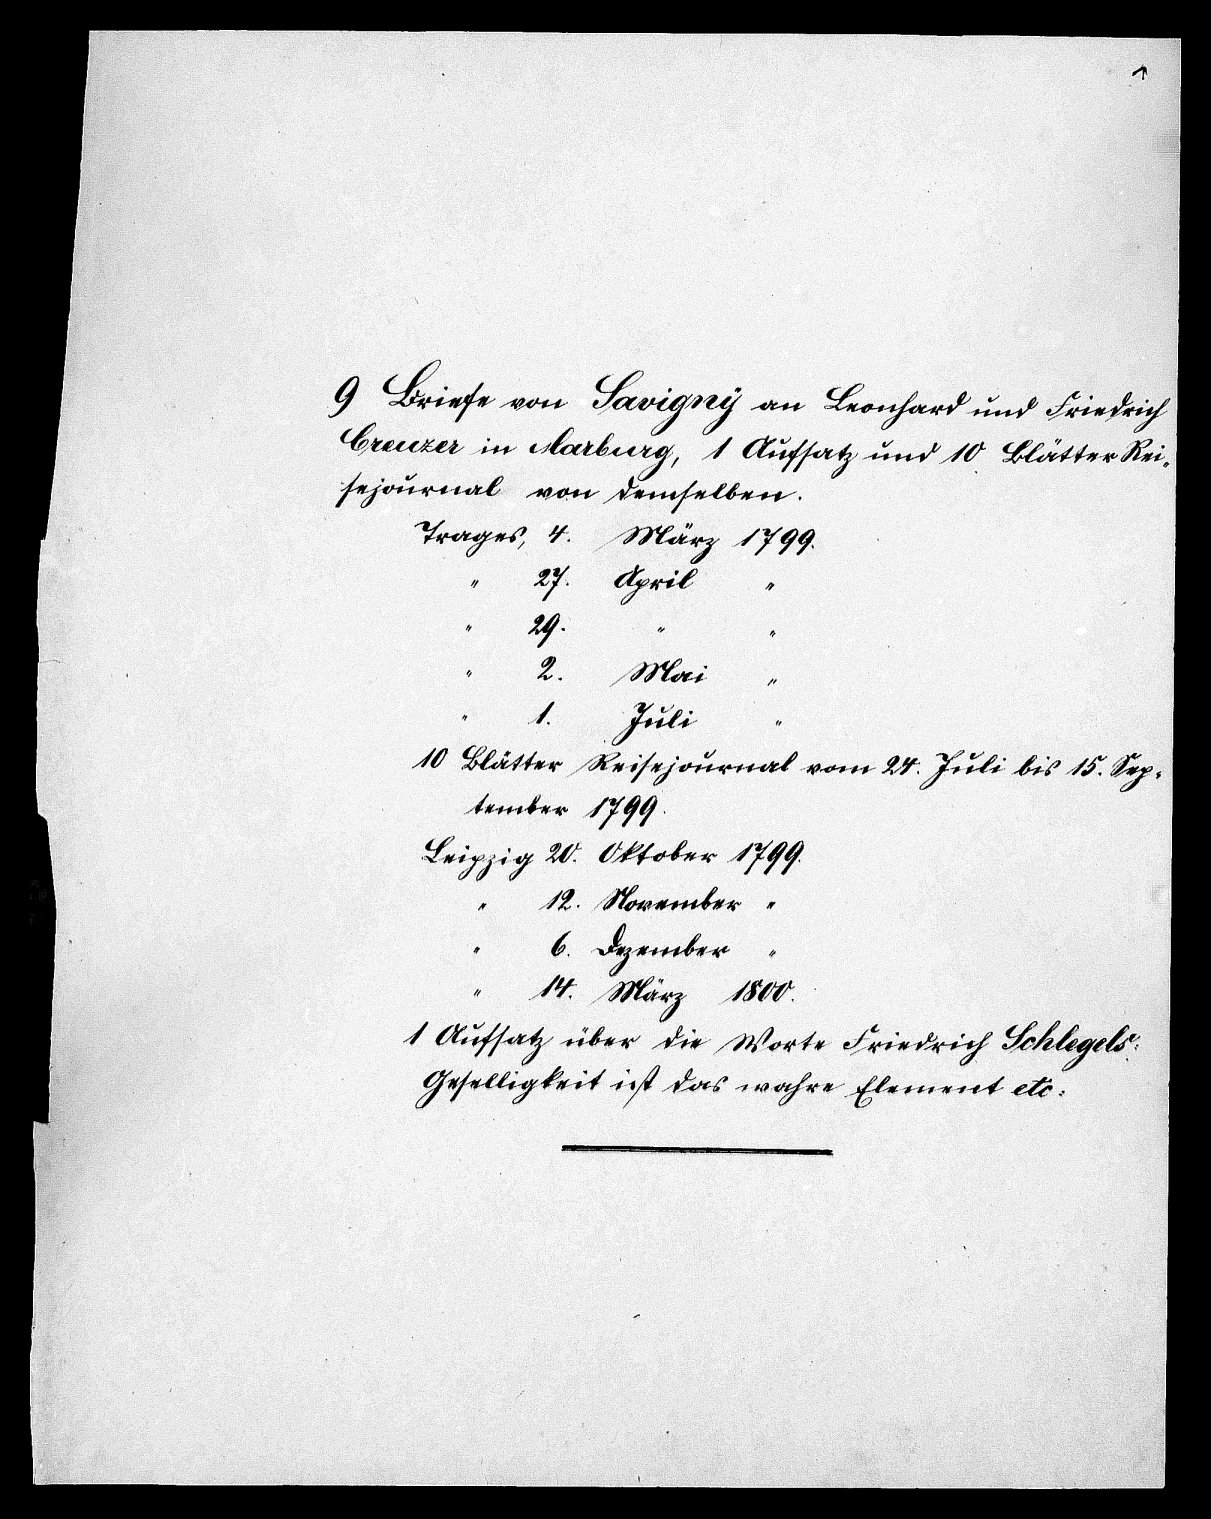 1
9 Briefe von Savigny an Leonhard und Friedrich
Creuzer in Marburg, 1 Aufsatz und 10 Blätter Rei-
sejournal von demselben.
Trages, 4. März 1799.
" 27. April "
" 29. " "
" 2. Mai "
" 1. Juli "
10 Blätter Reisejournal vom 24. Juli bis 15. Sep-
tember 1799.
Leipzig 20. Oktober 1799.
" 12. November "
" 6. Dezember "
" 14. März 1800.
1 Aufsatz über die Worte Friedrich Schlegels:
Geselligkeit ist das wahre Element etc: